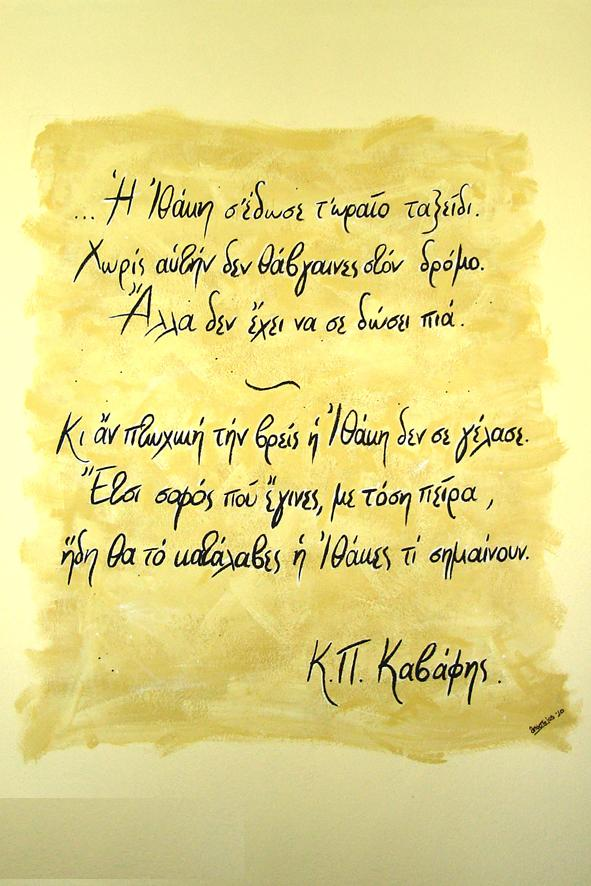 ... Ἡ Ἰθάκη σ' ἔδωσε τ' ὡραῖο ταξεῖδι.
Χωρίς αὐτήν δεν θἄβγαινες στόν δρόμο.
Ἄλλα δεν ἔχει να σε δώσει πιά.
Κι ἄν πτωχική τήν βρεῖς ἡ Ἰθάκη δεν σε γέλασε.
Ἔτσι σοφός πού ἔγινες, με τόση πεῖρα,
ἤδη θα τό κατάλαβες ἡ Ἰθάκες τί σημαίνουν.
Κ.Π. Καβάφης.